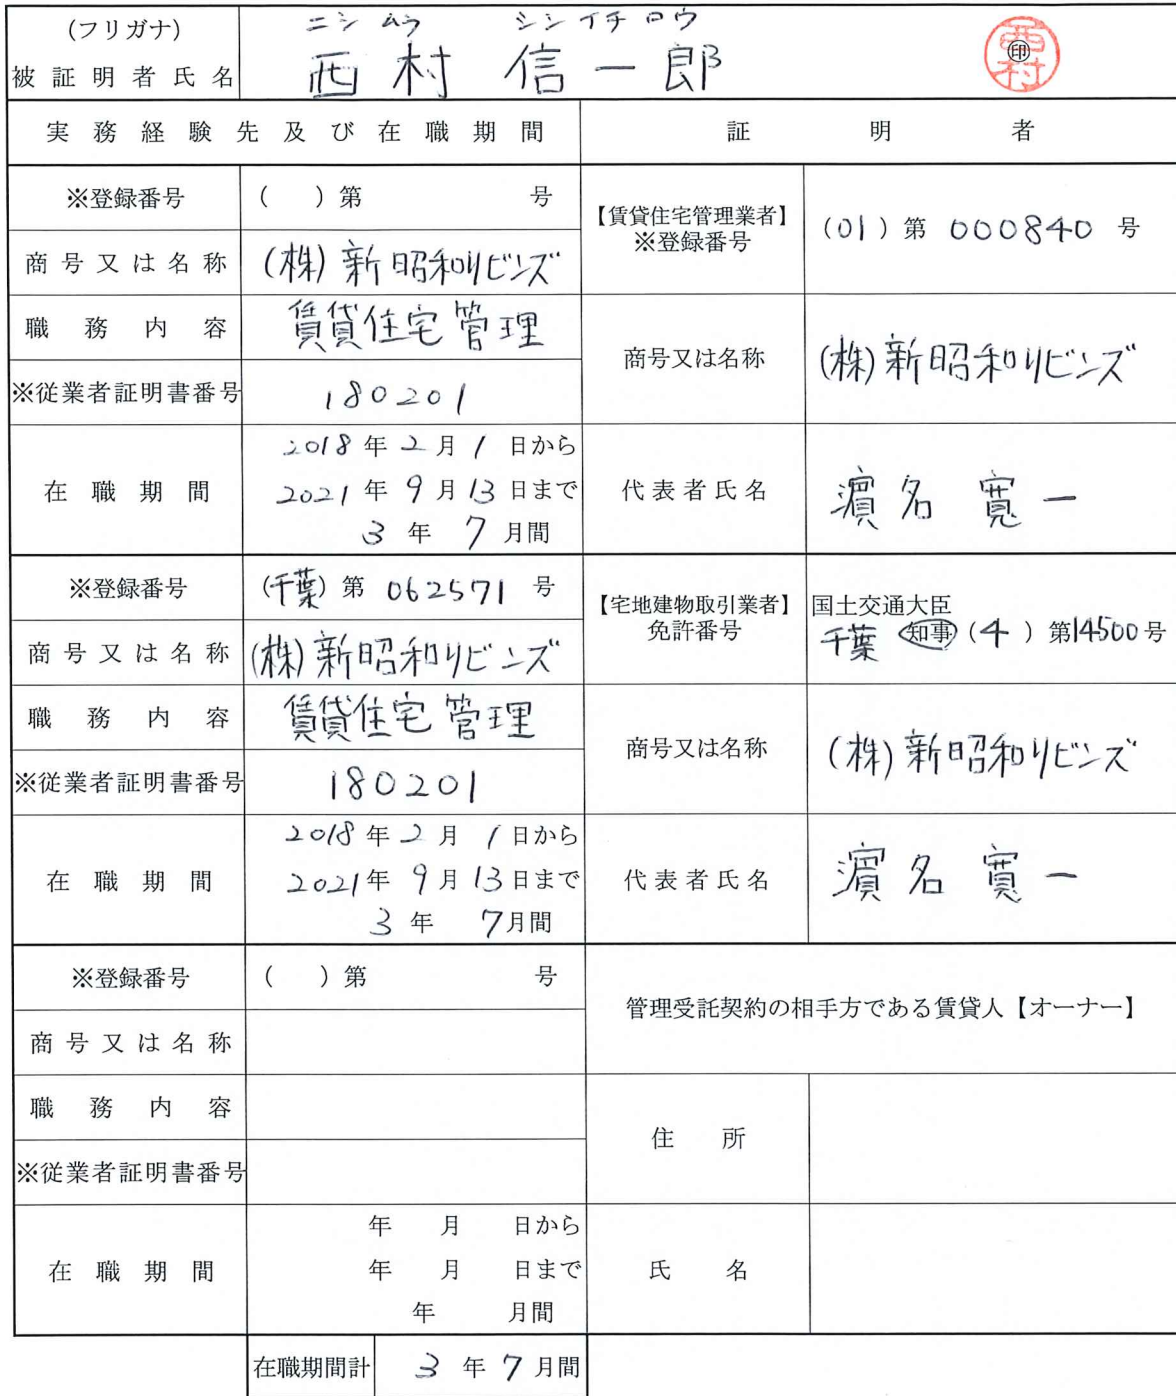 (フリガナ) ニシムラ シンイチロウ
被証明者氏名 西村 信一郎 ㊞ 西村
実務経験先及び在職期間 証明者
※登録番号 ( )第 号
【賃貸住宅管理業者】
※登録番号 (01)第 000840 号
商号又は名称 (株)新昭和リビンズ
職務内容 賃貸住宅管理
商号又は名称 (株)新昭和リビンズ
※従業者証明書番号 180201
在職期間 2018年2月1日から
2021年9月13日まで
3年7月間
代表者氏名 濵名 寛一
※登録番号 (千葉)第 062571 号
【宅地建物取引業者】
免許番号
国土交通大臣
千葉 知事(4)第14500号
商号又は名称 (株)新昭和リビンズ
職務内容 賃貸住宅管理
商号又は名称 (株)新昭和リビンズ
※従業者証明書番号 180201
在職期間 2018年2月1日から
2021年9月13日まで
3年7月間
代表者氏名 濵名 寛一
※登録番号 ( )第 号
管理受託契約の相手方である賃貸人【オーナー】
商号又は名称
職務内容
住所
※従業者証明書番号
在職期間 年 月 日から
年 月 日まで
年 月間
氏名
在職期間計 3年7月間